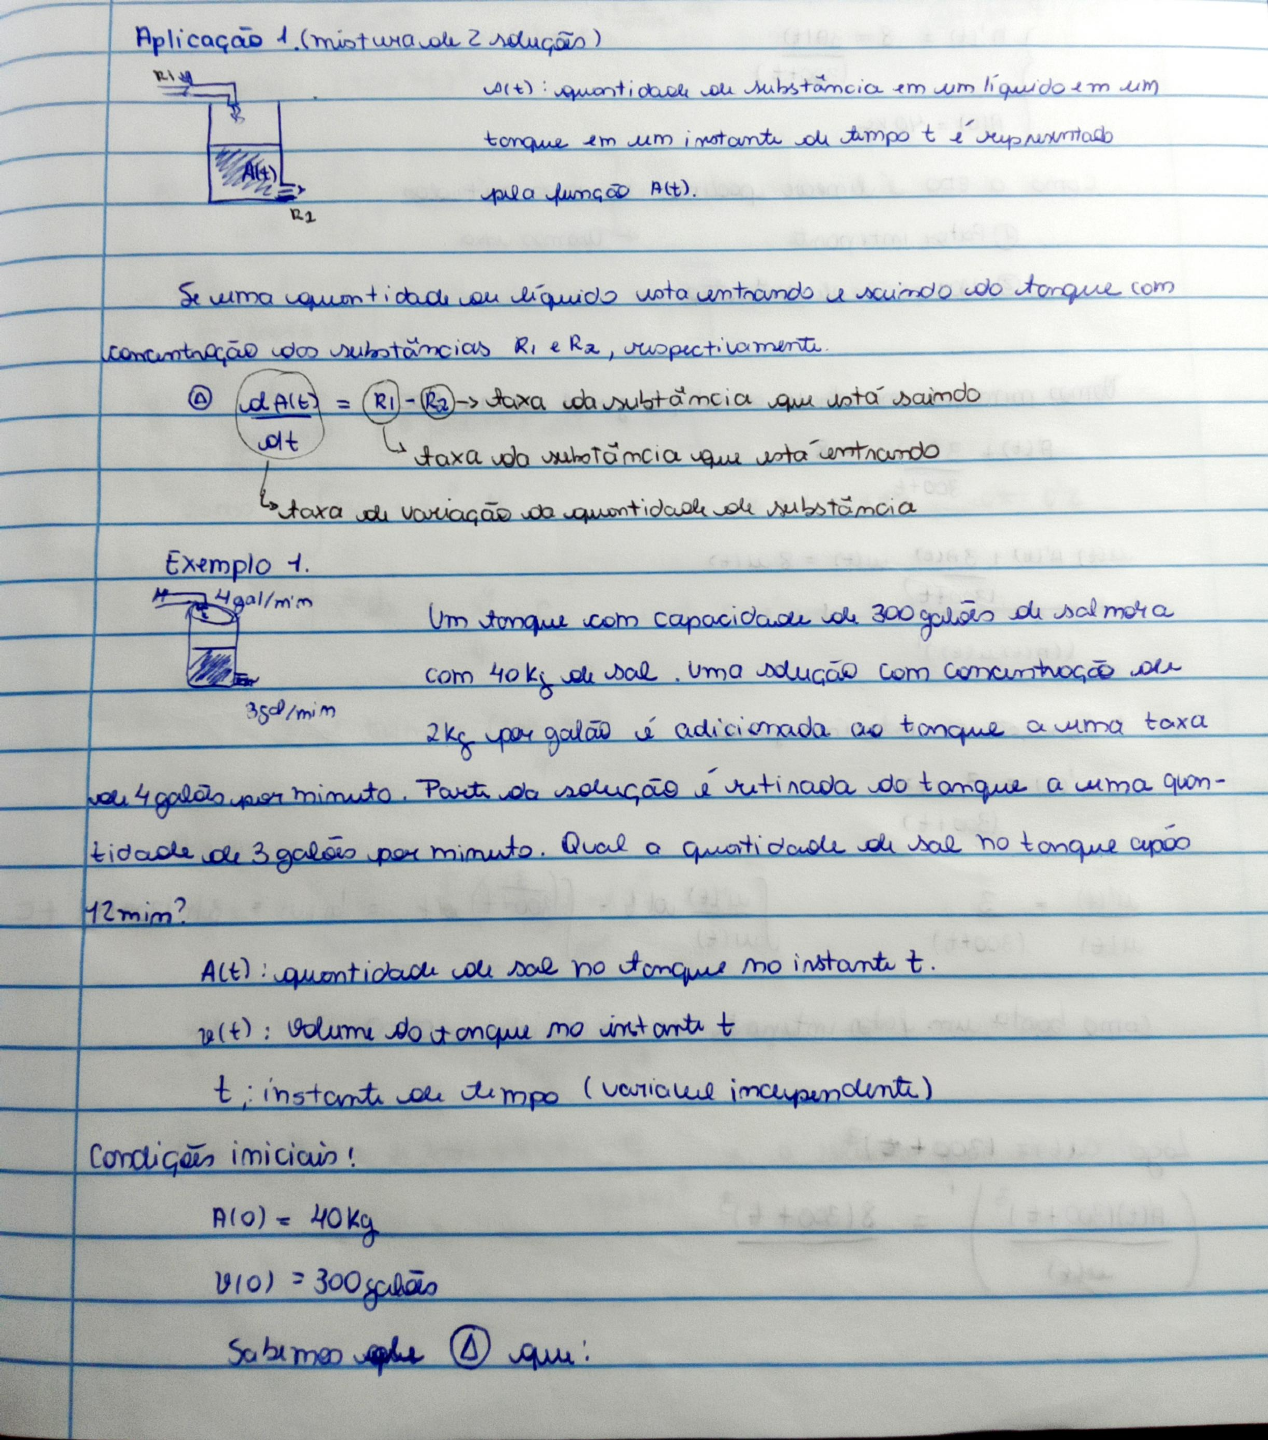 Aplicação 1. (mistura de 2 soluções)
R1
s(t): quantidade de substância em um líquido em um
tanque em um instante de tempo t é representado
A(t)
pela função A(t).
R2
Se uma quantidade de líquido esta entrando e saindo do tanque com
concentração das substâncias R1 e R2, respectivamente.
Δ dA(t)/dt = R1 - R2 → taxa da substância que está saindo
↳ taxa da substância que está entrando
↳ taxa de variação da quantidade de substância
Exemplo 1.
4gal/min
Um tanque com capacidade de 300 galões de salmora
com 40kg de sal. Uma solução com concentração de
3gal/min
2kg por galão é adicionada ao tanque a uma taxa
de 4 galões por minuto. Parte da solução é retirada do tanque a uma quan-
tidade de 3 galões por minuto. Qual a quantidade de sal no tanque após
12 min?
A(t): quantidade de sal no tanque no instante t.
v(t): volume do tanque no instante t
t: instante de tempo (variavel independente)
Condições iniciais:
A(0) = 40kg
v(0) = 300 galões
Sabemos Δ que: